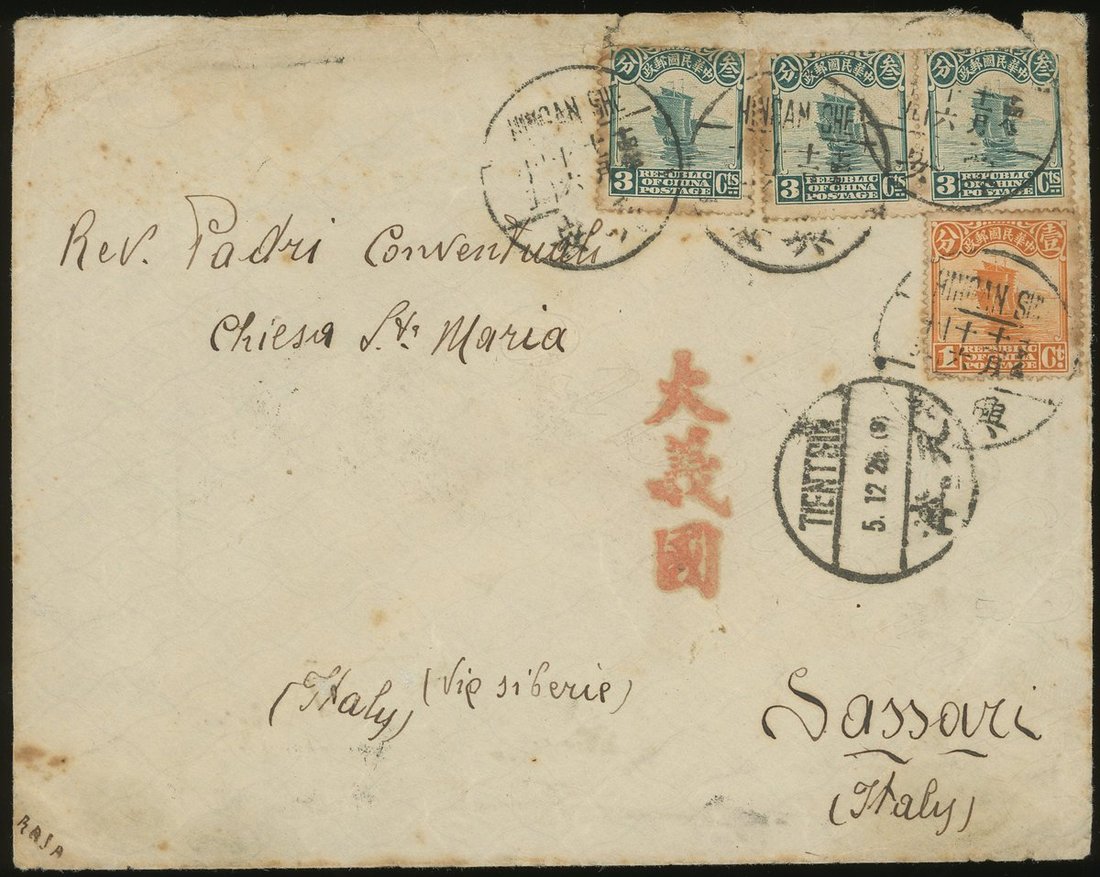 叁 中華民國郵政 分
3 REPUBLIC OF CHINA POSTAGE Cts
叁 中華民國郵政 分
3 REPUBLIC OF CHINA POSTAGE Cts
叁 中華民國郵政 分
3 REPUBLIC OF CHINA POSTAGE Cts
HINGAN SHE
HINGAN SHE
壹 中華民國郵政 分
1 REPUBLIC OF CHINA POSTAGE Ct.
HINGAN
Rev. Padri Conventuali
Chiesa Sta Maria
大義國
TIENTSIN
5.12.26.
天津
(Italy) (Vie siberie)
Sassari
(Italy)